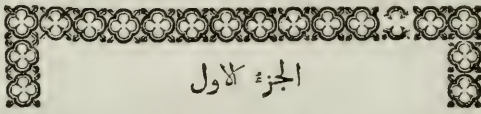 الجزء الاول